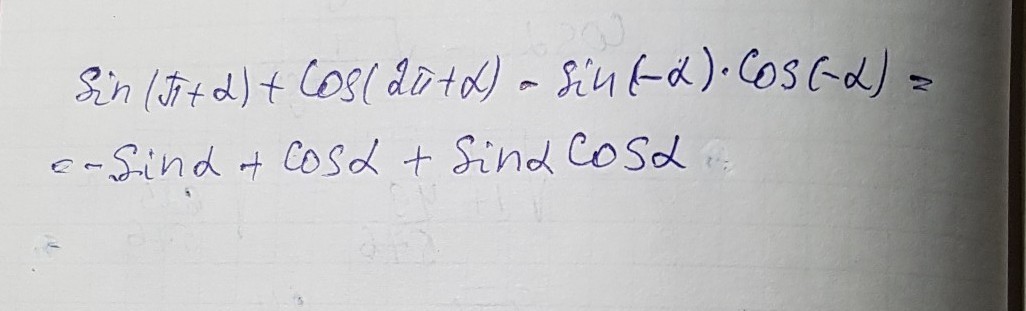 sin(π+α)+cos(2π+α)-sin(-α)·cos(-α)=
=-sinα+cosα+sinα cosα